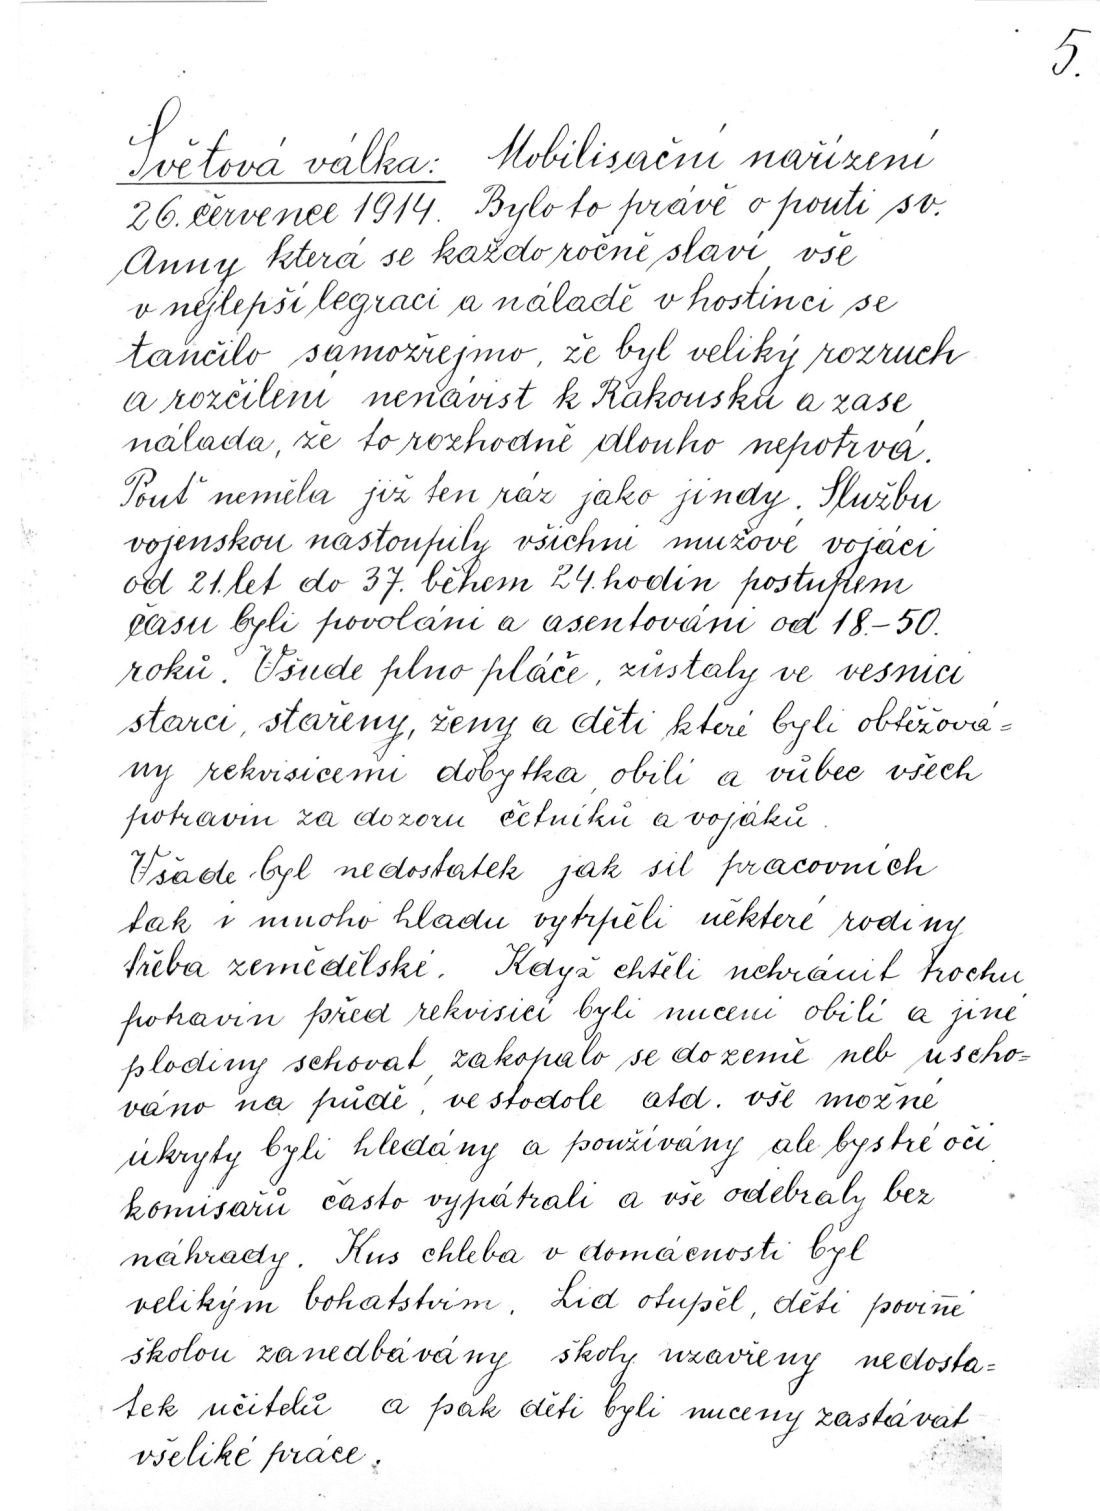 5.
Světová válka: Mobilisační nařízení
26. července 1914. Bylo to právě o pouti sv.
Anny která se každoročně slaví, vše
v nejlepší legraci a náladě v hostinci se
tančilo samozřejmo, že byl veliký rozruch
a rozčilení nenávist k Rakousku a zase
nálada, že to rozhodně dlouho nepotrvá.
Pouť neměla již ten ráz jako jindy. Službu
vojenskou nastoupily všichni mužové vojáci
od 21. let do 37. během 24. hodin postupem
času byli povoláni a asentováni od 18.–50.
roků. Všude plno pláče, zůstaly ve vesnici
starci, stařeny, ženy a děti které byli obtěžová=
ny rekvisicemi dobytka, obilí a vůbec všech
potravin za dozoru četníků a vojáků.
Všade byl nedostatek jak sil pracovních
tak i mnoho hladu vytrpěli některé rodiny
třeba zemědělské. Když chtěli uchránit trochu
potravin před rekvisicí byli nuceni obilí a jiné
plodiny schovat, zakopalo se do země neb uscho=
váno na půdě, ve stodole atd. vše možné
úkryty byli hledány a používány ale bystré oči
komisařů často vypátrali a vše odebraly bez
náhrady. Kus chleba v domácnosti byl
velikým bohatstvím. Lid otupěl, děti povin̄é
školou zanedbávány školy uzavřeny nedosta=
tek učitelů a pak děti byli nuceny zastávat
všeliké práce.